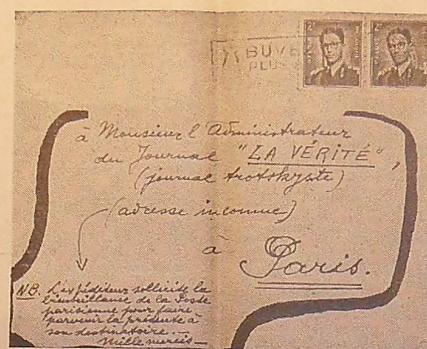 BUVE
PLUS
à Monsieur l'Administrateur
du Journal "LA VÉRITÉ",
(journal trotskyste)
(adresse inconnue)
à
Paris.
N.B. L'expéditeur sollicite la
bienveillance de la Poste
parisienne pour faire
parvenir la présente à
son destinataire. —
Mille mercis —